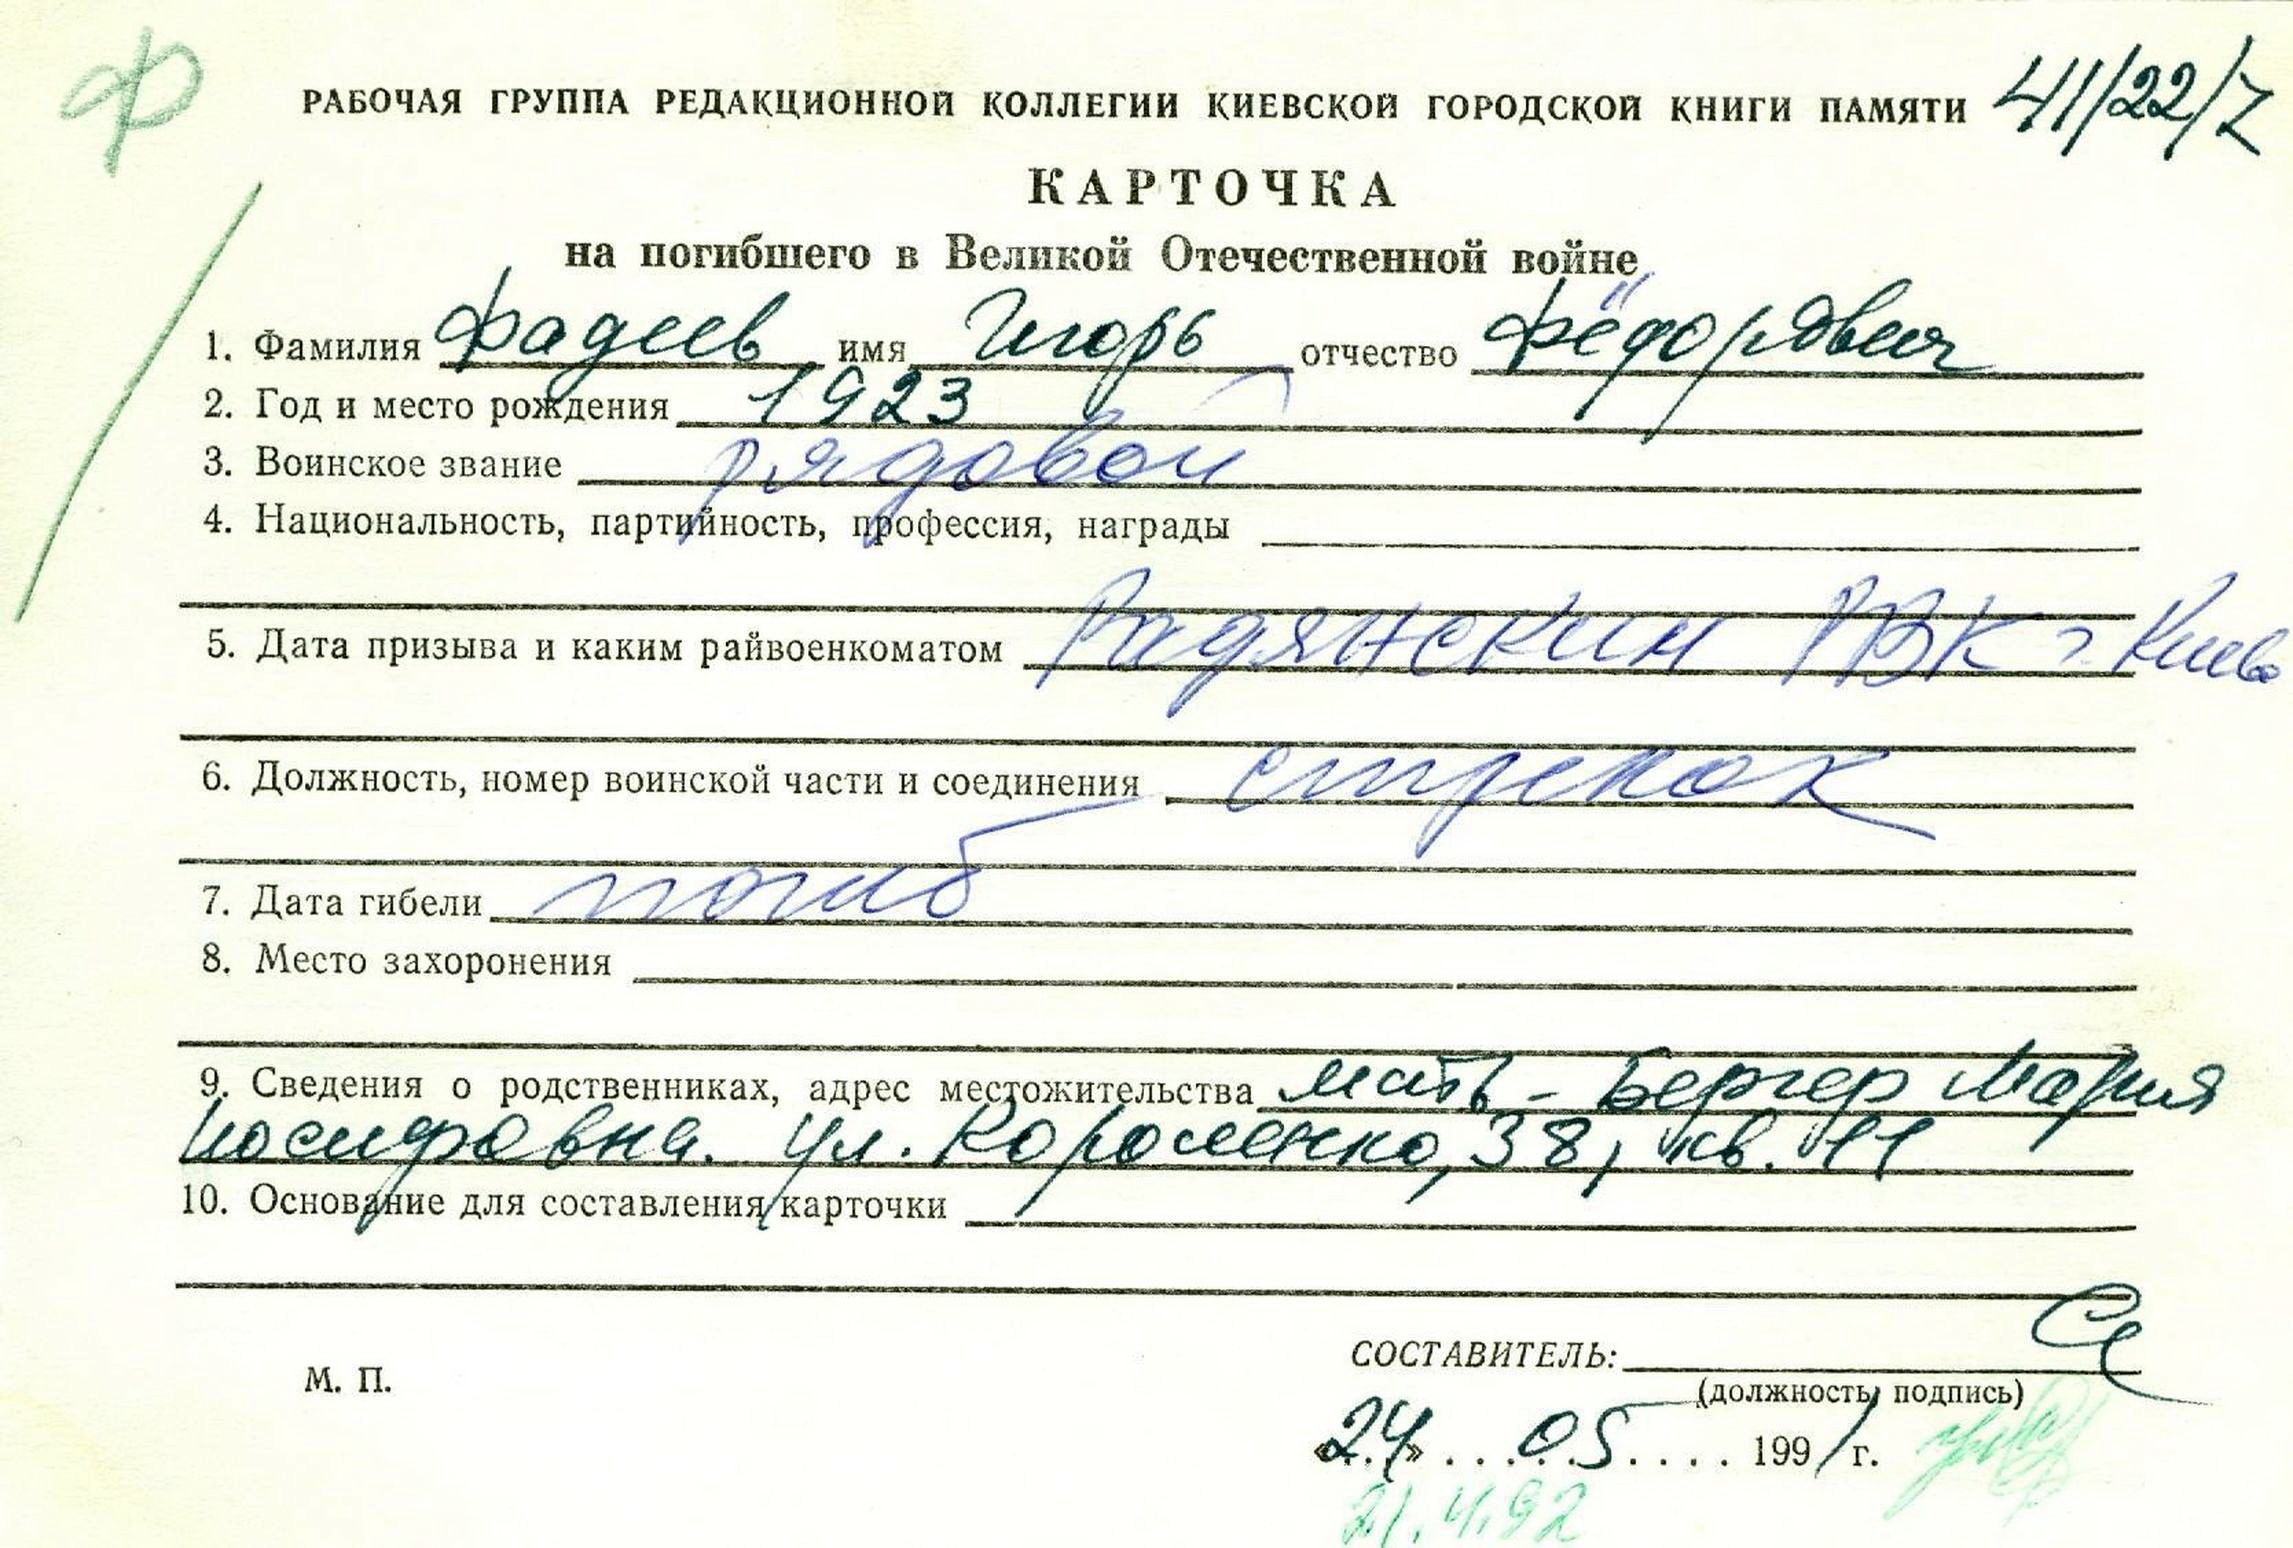 Ф
РАБОЧАЯ ГРУППА РЕДАКЦИОННОЙ КОЛЛЕГИИ КИЕВСКОЙ ГОРОДСКОЙ КНИГИ ПАМЯТИ 41/22/7
КАРТОЧКА
на погибшего в Великой Отечественной войне
1. Фамилия Фадеев имя Игорь отчество Фёдорович
2. Год и место рождения 1923
3. Воинское звание рядовой
4. Национальность, партийность, профессия, награды
5. Дата призыва и каким райвоенкоматом Радянским РВК г. Киева
6. Должность, номер воинской части и соединения стрелок
7. Дата гибели погиб
8. Место захоронения
9. Сведения о родственниках, адрес местожительства мать - Бергер Мария
Иосифовна. ул. Короленко, 38, кв. 11
10. Основание для составления карточки
СОСТАВИТЕЛЬ:
М. П.
(должность, подпись)
«24» 05 1991 г.
21.4.92